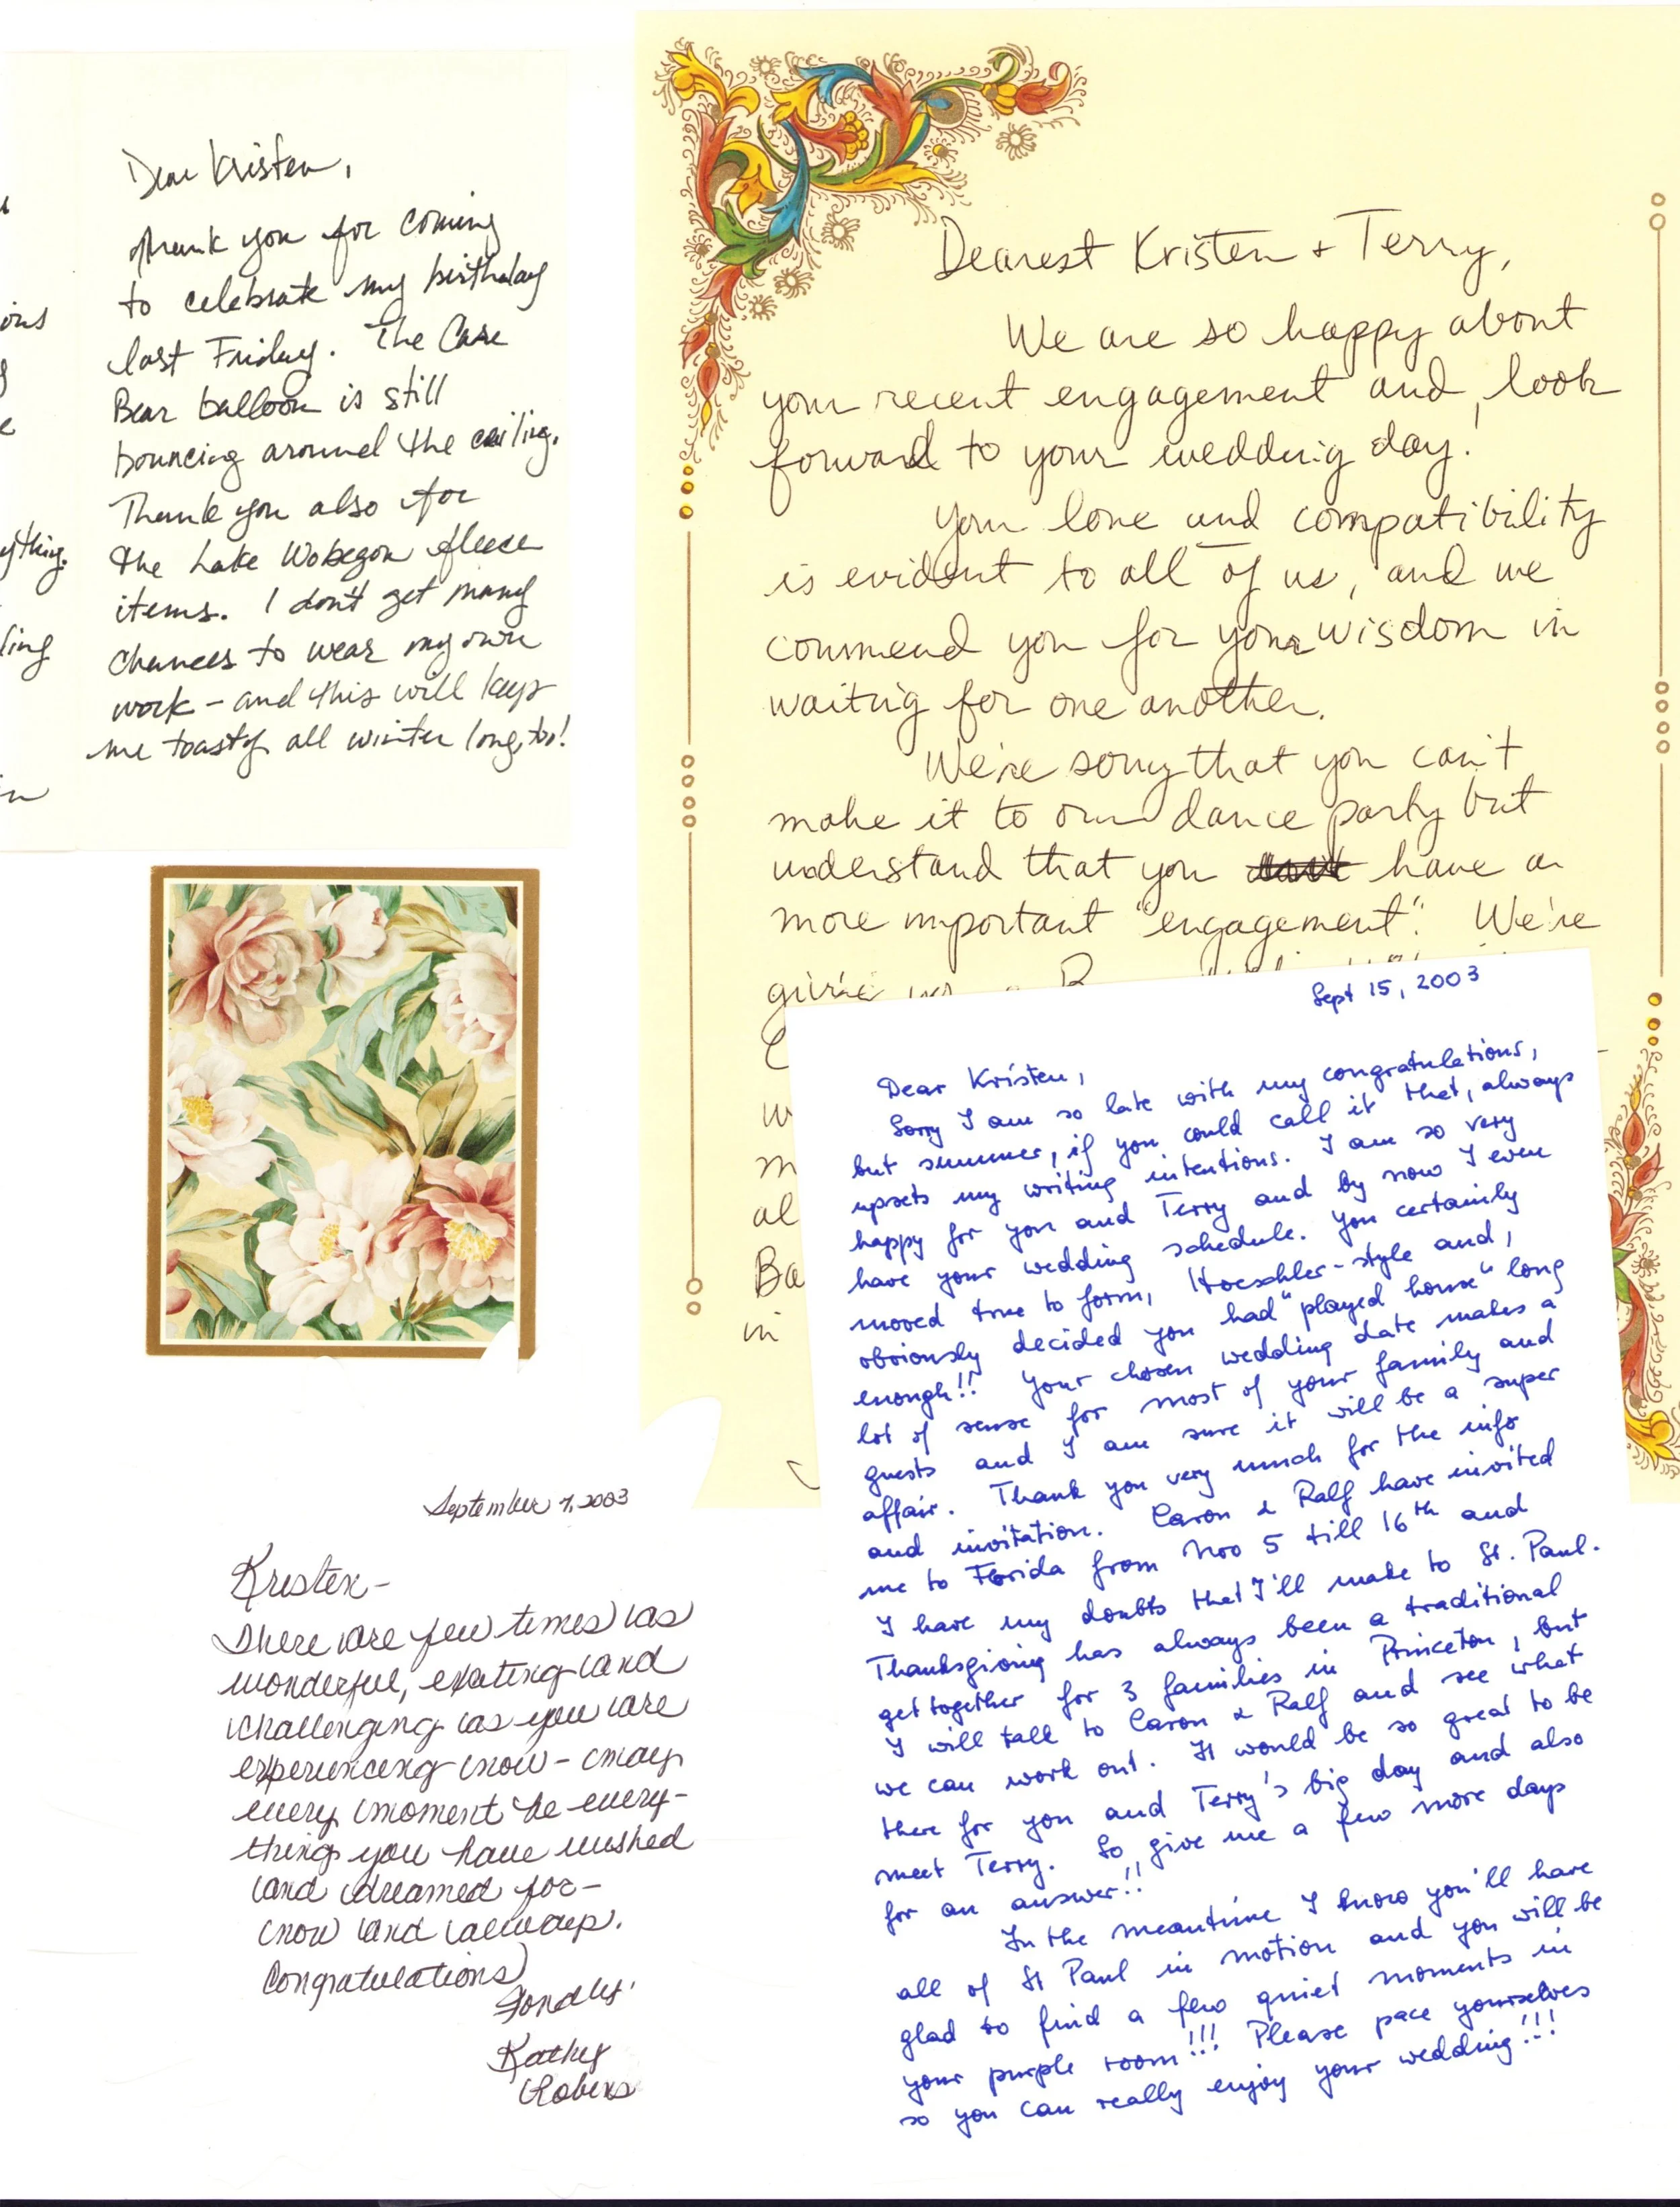 Dear Kristen,
Thank you for coming
to celebrate my birthday
last Friday. The Care
Bear balloon is still
bouncing around the ceiling.
Thank you also for
the Lake Wobegon fleece
items. I don't get many
chances to wear my own
work – and this will keep
me toasty all winter long, too!
ons
ything.
ling
Dearest Kristen + Terry,
We are so happy about
your recent engagement and look
forward to your wedding day!
Your love and compatibility
is evident to all of us, and we
commend you for your wisdom in
waiting for one another.
We're sorry that you can't
make it to our dance party but
understand that you have a
more important "engagement". We're
w
m
al
Ba
in
September 7, 2003
Kristen –
There are few times as
wonderful, exciting and
challenging as you are
experiencing now – may
every moment be every-
thing you have wished
and dreamed for –
now and always.
Congratulations
Fondly,
Kathy
Robens
Sept 15, 2003
Dear Kristen,
Sorry I am so late with my congratulations,
but summer, if you could call it that, always
upsets my writing intentions. I am so very
happy for you and Terry and by now I even
have your wedding schedule. You certainly
moved true to form, Hoeschler-style and,
obviously decided you had "played house" long
enough!! Your chosen wedding date makes a
lot of sense for most of your family and
guests and I am sure it will be a super
affair. Thank you very much for the info
and invitation. Caron & Ralf have invited
me to Florida from Nov 5 till 16th and
I have my doubts that I'll make to St. Paul.
Thanksgiving has always been a traditional
get together for 3 families in Princeton, but
I will talk to Caron & Ralf and see what
we can work out. It would be so great to be
there for you and Terry's big day and also
meet Terry. So give me a few more days
for an answer!!
In the meantime I know you'll have
all of St Paul in motion and you will be
glad to find a few quiet moments in
your purple room!!! Please pace yourselves
so you can really enjoy your wedding!!!